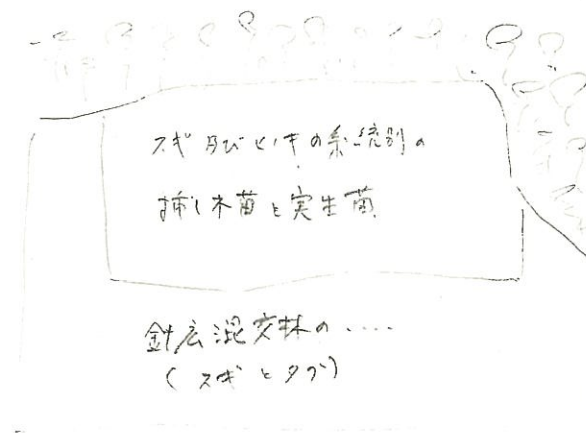 スギ及びヒノキの系統別の
挿し木苗と実生苗
針広混交林の‥‥
(スギとタブ)